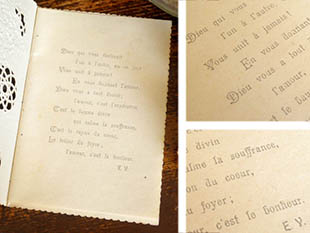 Dieu qui vous donnant
l'un à l'autre, en ce jour
Vous unit à jamais!
En vous donnant l'amour,
Dieu vous a tout donné;
l'amour, c'est l'espérance,
C'est le baume divin
qui calme la souffrance,
C'est le rayon du coeur,
Le foyer;
l'amour, c'est le bonheur.
E. V.
Dieu qui vous
l'un à l'autre,
Vous unit à jamais!
En vous donnant
Dieu vous a tout
l'amour,
C'est le bau
divin
alme la souffrance,
on du coeur,
u foyer;
ur, c'est le bonheur.
E. V.